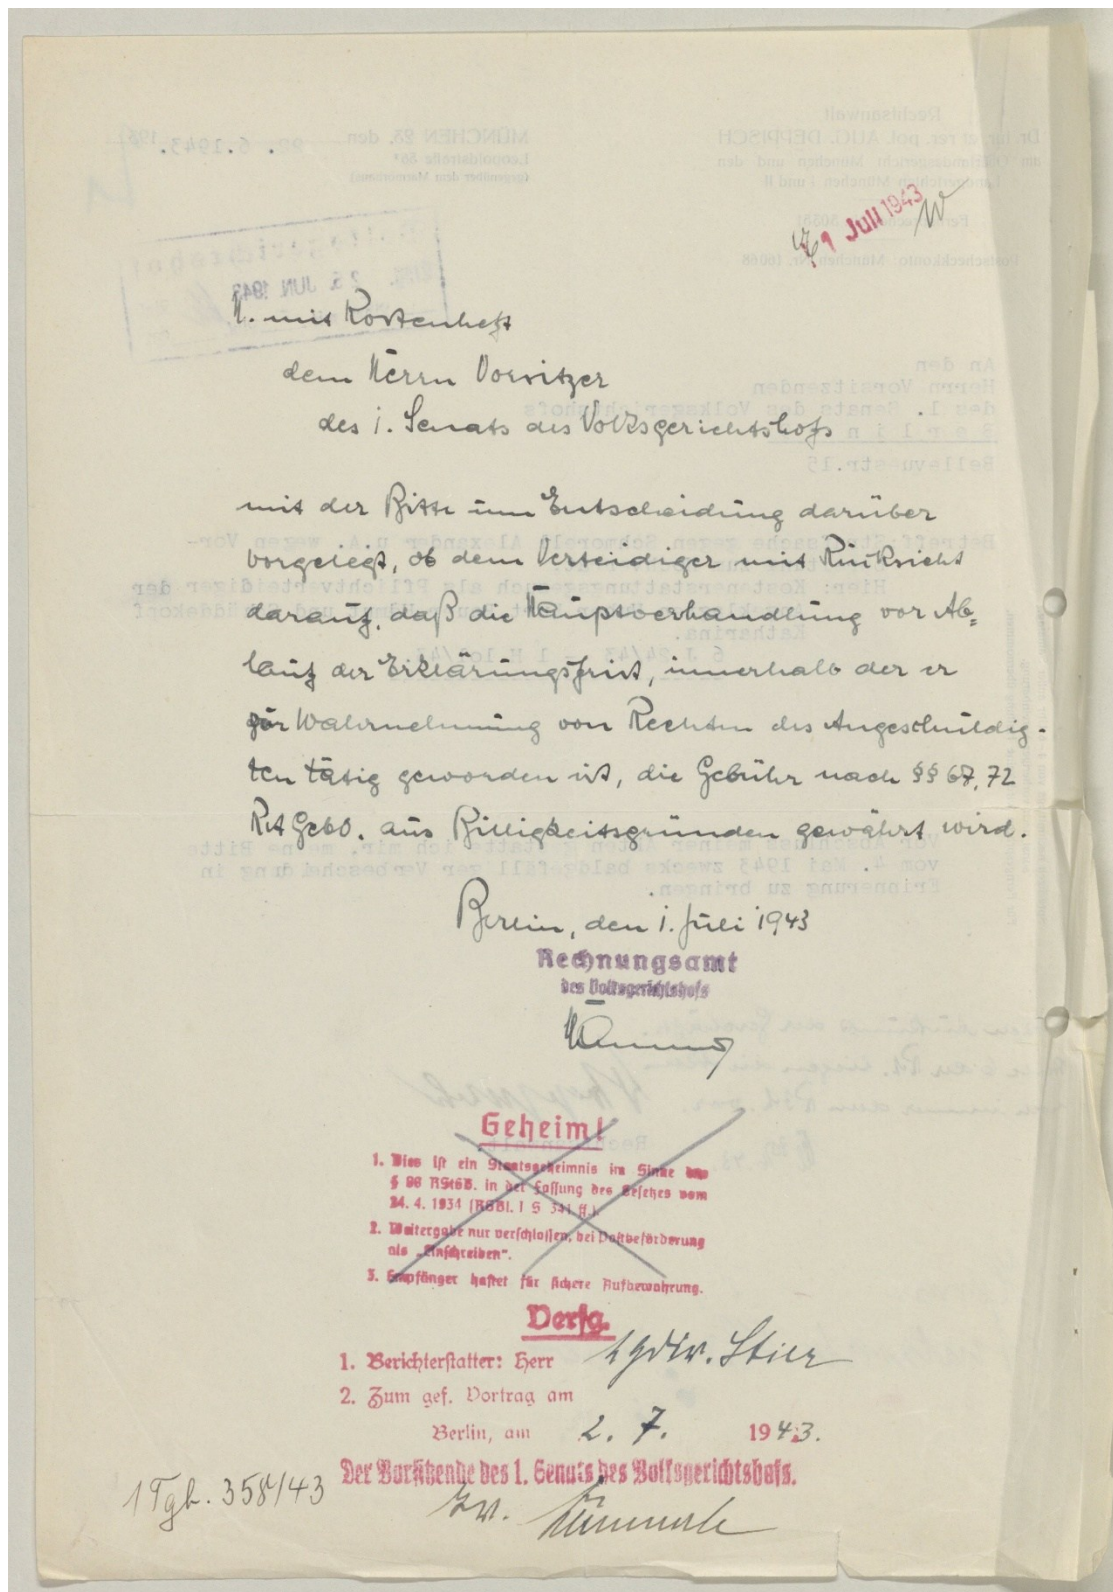 1 Juli 1943
U. mit Kostenheft
dem Herrn Vorsitzer
des 1. Senats des Volksgerichtshofs
mit der Bitte um Entscheidung darüber
vorgelegt, ob dem Verteidiger mit Rücksicht
darauf, daß die Hauptverhandlung vor Ab=
lauf der Erklärungsfrist, innerhalb der er
zur Wahrnehmung von Rechten des Angeschuldig-
ten tätig geworden ist, die Gebühr nach §§ 67, 72
RAGebO. aus Billigkeitsgründen gewährt wird.
Berlin, den 1. Juli 1943
Rechnungsamt
des Volksgerichtshofs
Geheim!
1. Dies ist ein Staatsgeheimnis im Sinne des
§ 88 RStGB. in der Fassung des Gesetzes vom
24. 4. 1934 (RGBl. I S 341 ff.).
2. Weitergabe nur verschlossen, bei Postbeförderung
als „Einschreiben“.
3. Empfänger haftet für sichere Aufbewahrung.
Verfg.
1. Berichterstatter: Herr LGDir. Stier
2. Zum gef. Vortrag am
Berlin, am 2. 7. 1943.
Der Vorsitzende des 1. Senats des Volksgerichtshofs.
1 Tgb. 358/43